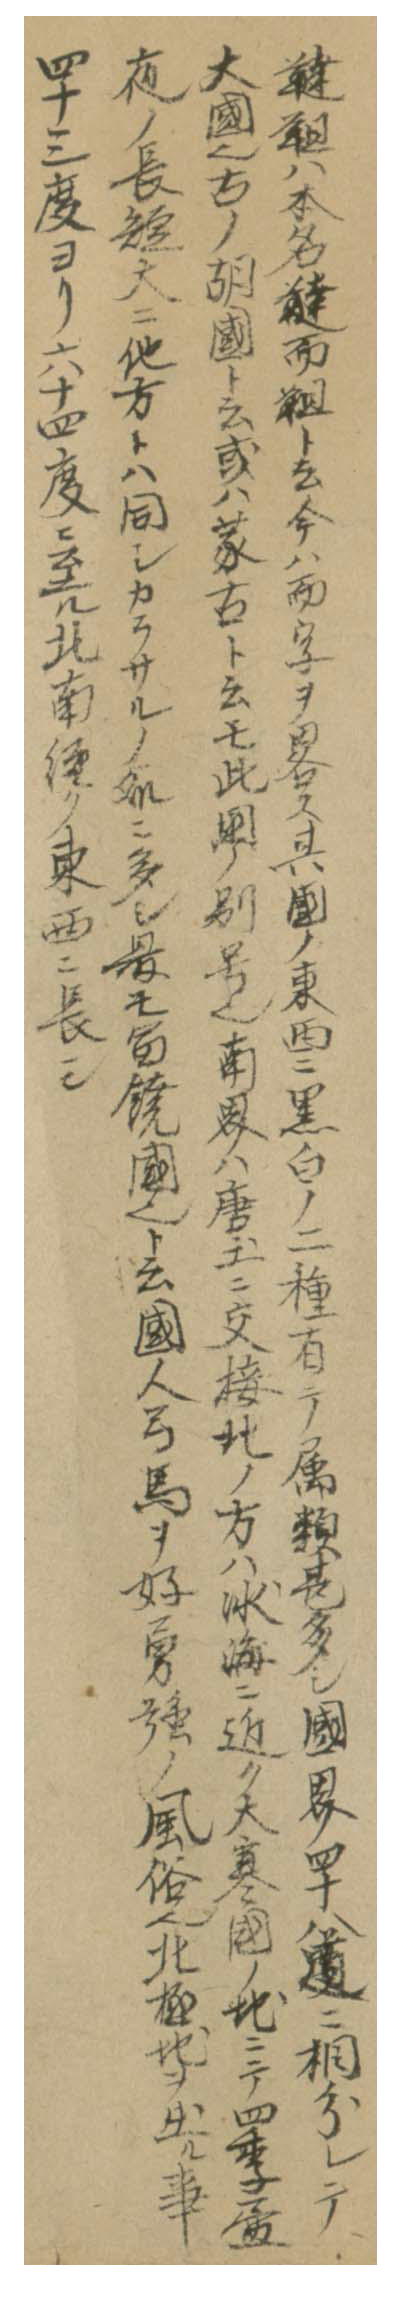 韃靼ハ本名韃而靼ト云今ハ而字ヲ畧ス其國ノ東西ニ黒白ノ二種有テ属類甚多シ國界四十八道ニ相分レテ
大國也古ノ胡國ト云或ハ蒙古ト云モ此国ノ別号也南界ハ唐土ニ交接北ノ方ハ氷海ニ近ク大寒國ノ地ニテ四季昼
夜ノ長短大ニ他方トハ同シカラサルノ処ニ多シ最モ冨饒國也ト云國人弓馬ヲ好勇強ノ風俗也北極地ヲ出ル事
四十三度ヨリ六十四度ニ至ル北南縮ク東西ニ長シ